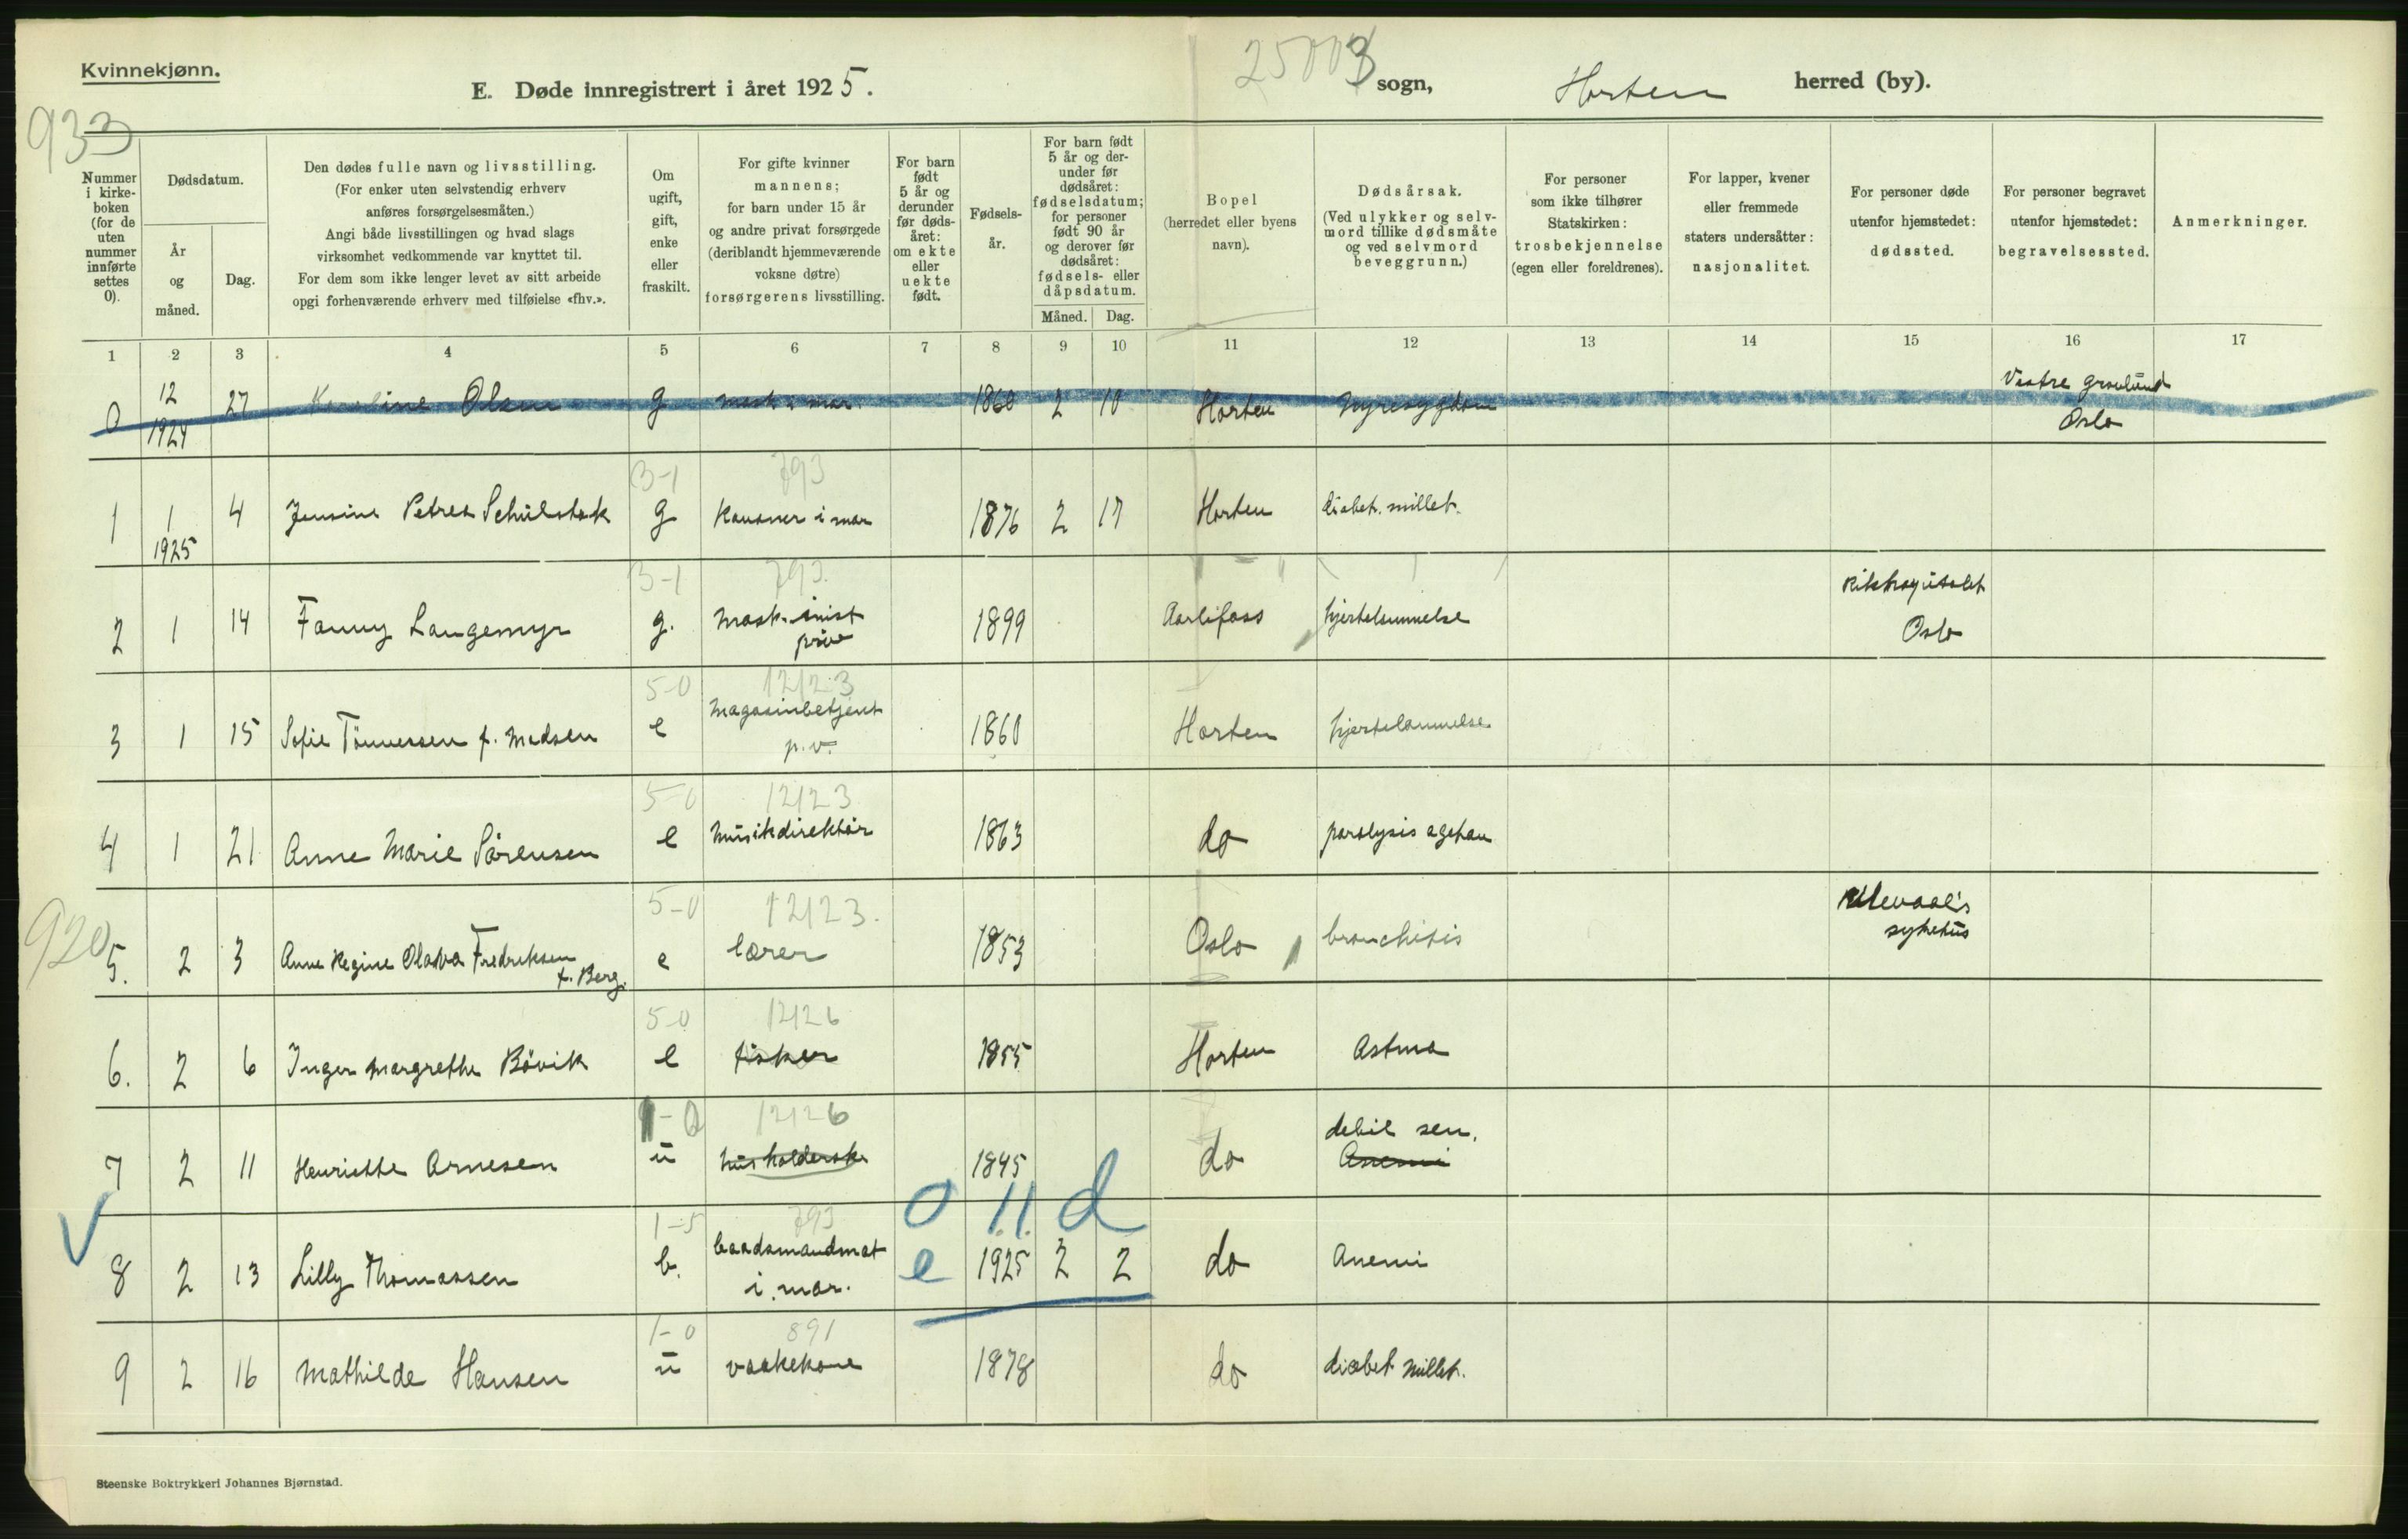 Kvinnekjønn.
E. Døde innregistrert i året 1925.
25003 sogn, Horten herred (by).
933
Nummer i kirke-boken (for de uten nummer innførte settes 0).
Dødsdatum.
År og måned.
Dag.
Den dødes fulle navn og livsstilling.
(For enker uten selvstendig erhverv
anføres forsørgelsesmåten.)
Angi både livsstillingen og hvad slags
virksomhet vedkommende var knyttet til.
For dem som ikke lenger levet av sitt arbeide
opgi forhenværende erhverv med tilføielse «fhv.».
Om ugift, gift, enke eller fraskilt.
For gifte kvinner
mannens;
for barn under 15 år
og andre privat forsørgede
(deriblandt hjemmeværende
voksne døtre)
forsørgerens livsstilling.
For barn født 5 år og derunder før døds-året: om ekte eller uekte født.
Fødsels-år.
For barn født 5 år og der-under før dødsåret: fødselsdatum; for personer født 90 år og derover før dødsåret: fødsels- eller dåpsdatum.
Måned. Dag.
Bopel
(herredet eller byens
navn).
Dødsårsak.
(Ved ulykker og selv-
mord tillike dødsmåte
og ved selvmord
beveggrunn.)
For personer
som ikke tilhører
Statskirken:
trosbekjennelse
(egen eller foreldrenes).
For lapper, kvener
eller fremmede
staters undersåtter:
nasjonalitet.
For personer døde
utenfor hjemstedet:
dødssted.
For personer begravet
utenfor hjemstedet:
begravelsessted.
Anmerkninger.
1 2 3 4 5 6 7 8 9 10 11 12 13 14 15 16 17
0 12 1924 27 Karoline Olsen g mask. i mar. 1860 2 10 Horten Nyresygdom Vestre gravlund Oslo
3-1 793
1 1 1925 4 Jensine Petrea Schulstok g Kanoner i mar 1876 2 17 Horten diabet. millet.
3-1 793.
2 1 14 Fanny Langemyr g. mask.-inist priv 1899 hjertelammelse Rikshospitalet Oslo
5-0 12123
3 1 15 Sofie Tönnessen f. Madsen e Magasinbetjent p.v. 1860 Horten hjertelammelse
5-0 12123
4 1 21 Anne Marie Sörensen e musikdirektör 1863 do paralysis agitan
920 5-0 12123.
5. 2 3 Anne Regine Olava Fredriksen f. Berg. e lærer 1853 Oslo bronchitis Ullevaal's sykehus
5-0 12126
6. 2 6 Inger Margrethe Bövik e fisker 1855 Horten Astma
1-0 12126
7 2 11 Henriette Arnesen u husholderske 1845 do debil sen. Anemi
1-5 793 0 11 d
8 2 13 Lilly Thomassen b. baadsmandmat i. mar. e 1925 2 2 do Anemi
1-0 891
9 2 16 Mathilde Hansen u vaskekone 1878 do diabet millet.
Steenske Boktrykkeri Johannes Bjørnstad.